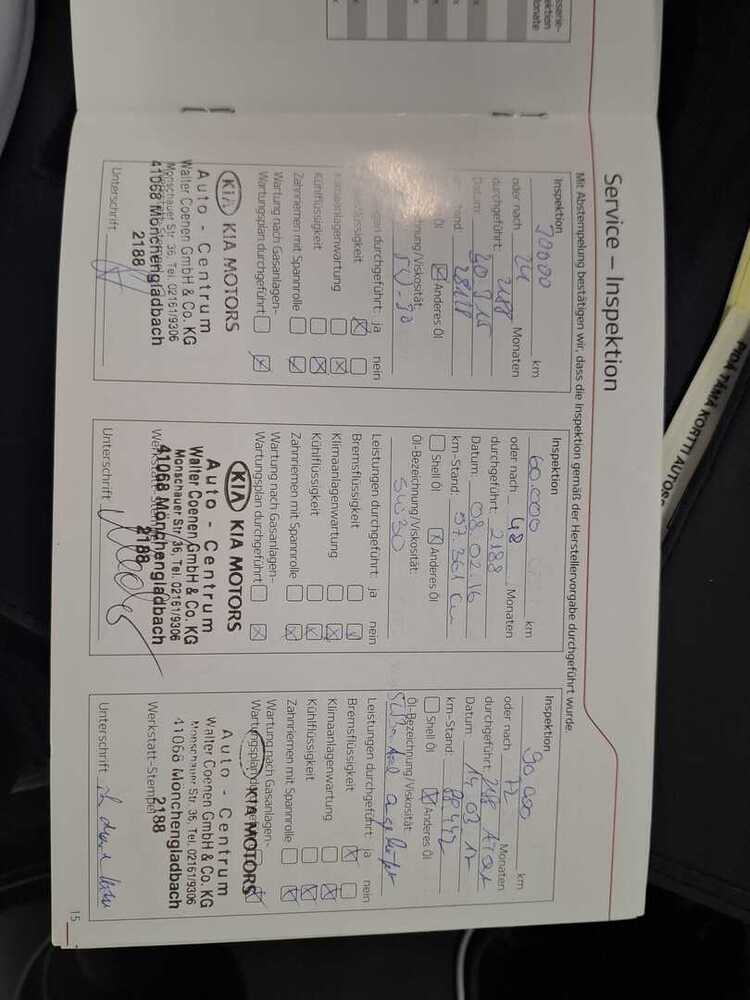 Service – Inspektion
Mit Abstempelung bestätigen wir, dass die Inspektion gemäß der Herstellervorgabe durchgeführt wurde.
Inspektion
30000 km
oder nach 24 Monaten
durchgeführt: 2188
Datum:
Öl Anderes Öl
5W-30
durchgeführt: ja nein
Klimaanlagenwartung
Kühlflüssigkeit
Zahnriemen mit Spannrolle
Wartung nach Gasanlagen-
Wartungsplan durchgeführt
KIA KIA MOTORS
Auto - Centrum
Walter Coenen GmbH & Co. KG
Monschauer Str. 36, Tel. 02161/9306
41068 Mönchengladbach
2188
Unterschrift
Inspektion
60.000 km
oder nach 48 Monaten
durchgeführt: 2188
Datum: 08.02.16
km-Stand:
Shell Öl Anderes Öl
Öl-Bezeichnung/Viskosität:
5W30
Leistungen durchgeführt: ja nein
Bremsflüssigkeit
Klimaanlagenwartung
Kühlflüssigkeit
Zahnriemen mit Spannrolle
Wartung nach Gasanlagen-
Wartungsplan durchgeführt
KIA KIA MOTORS
Auto - Centrum
Walter Coenen GmbH & Co. KG
Monschauer Str. 36, Tel. 02161/9306
41068 Mönchengladbach
2188
Unterschrift
Inspektion
90.000 km
oder nach 72 Monaten
durchgeführt:
Datum: 14.03.17
km-Stand: 88442
Shell Öl Anderes Öl
Öl-Bezeichnung/Viskosität:
Leistungen durchgeführt: ja nein
Bremsflüssigkeit
Klimaanlagenwartung
Kühlflüssigkeit
Zahnriemen mit Spannrolle
Wartung nach Gasanlagen-
KIA MOTORS
Auto - Centrum
Walter Coenen GmbH & Co. KG
Monschauer Str. 36, Tel. 02161/9306
41068 Mönchengladbach
2188
Werkstatt-Stempel
Unterschrift
15